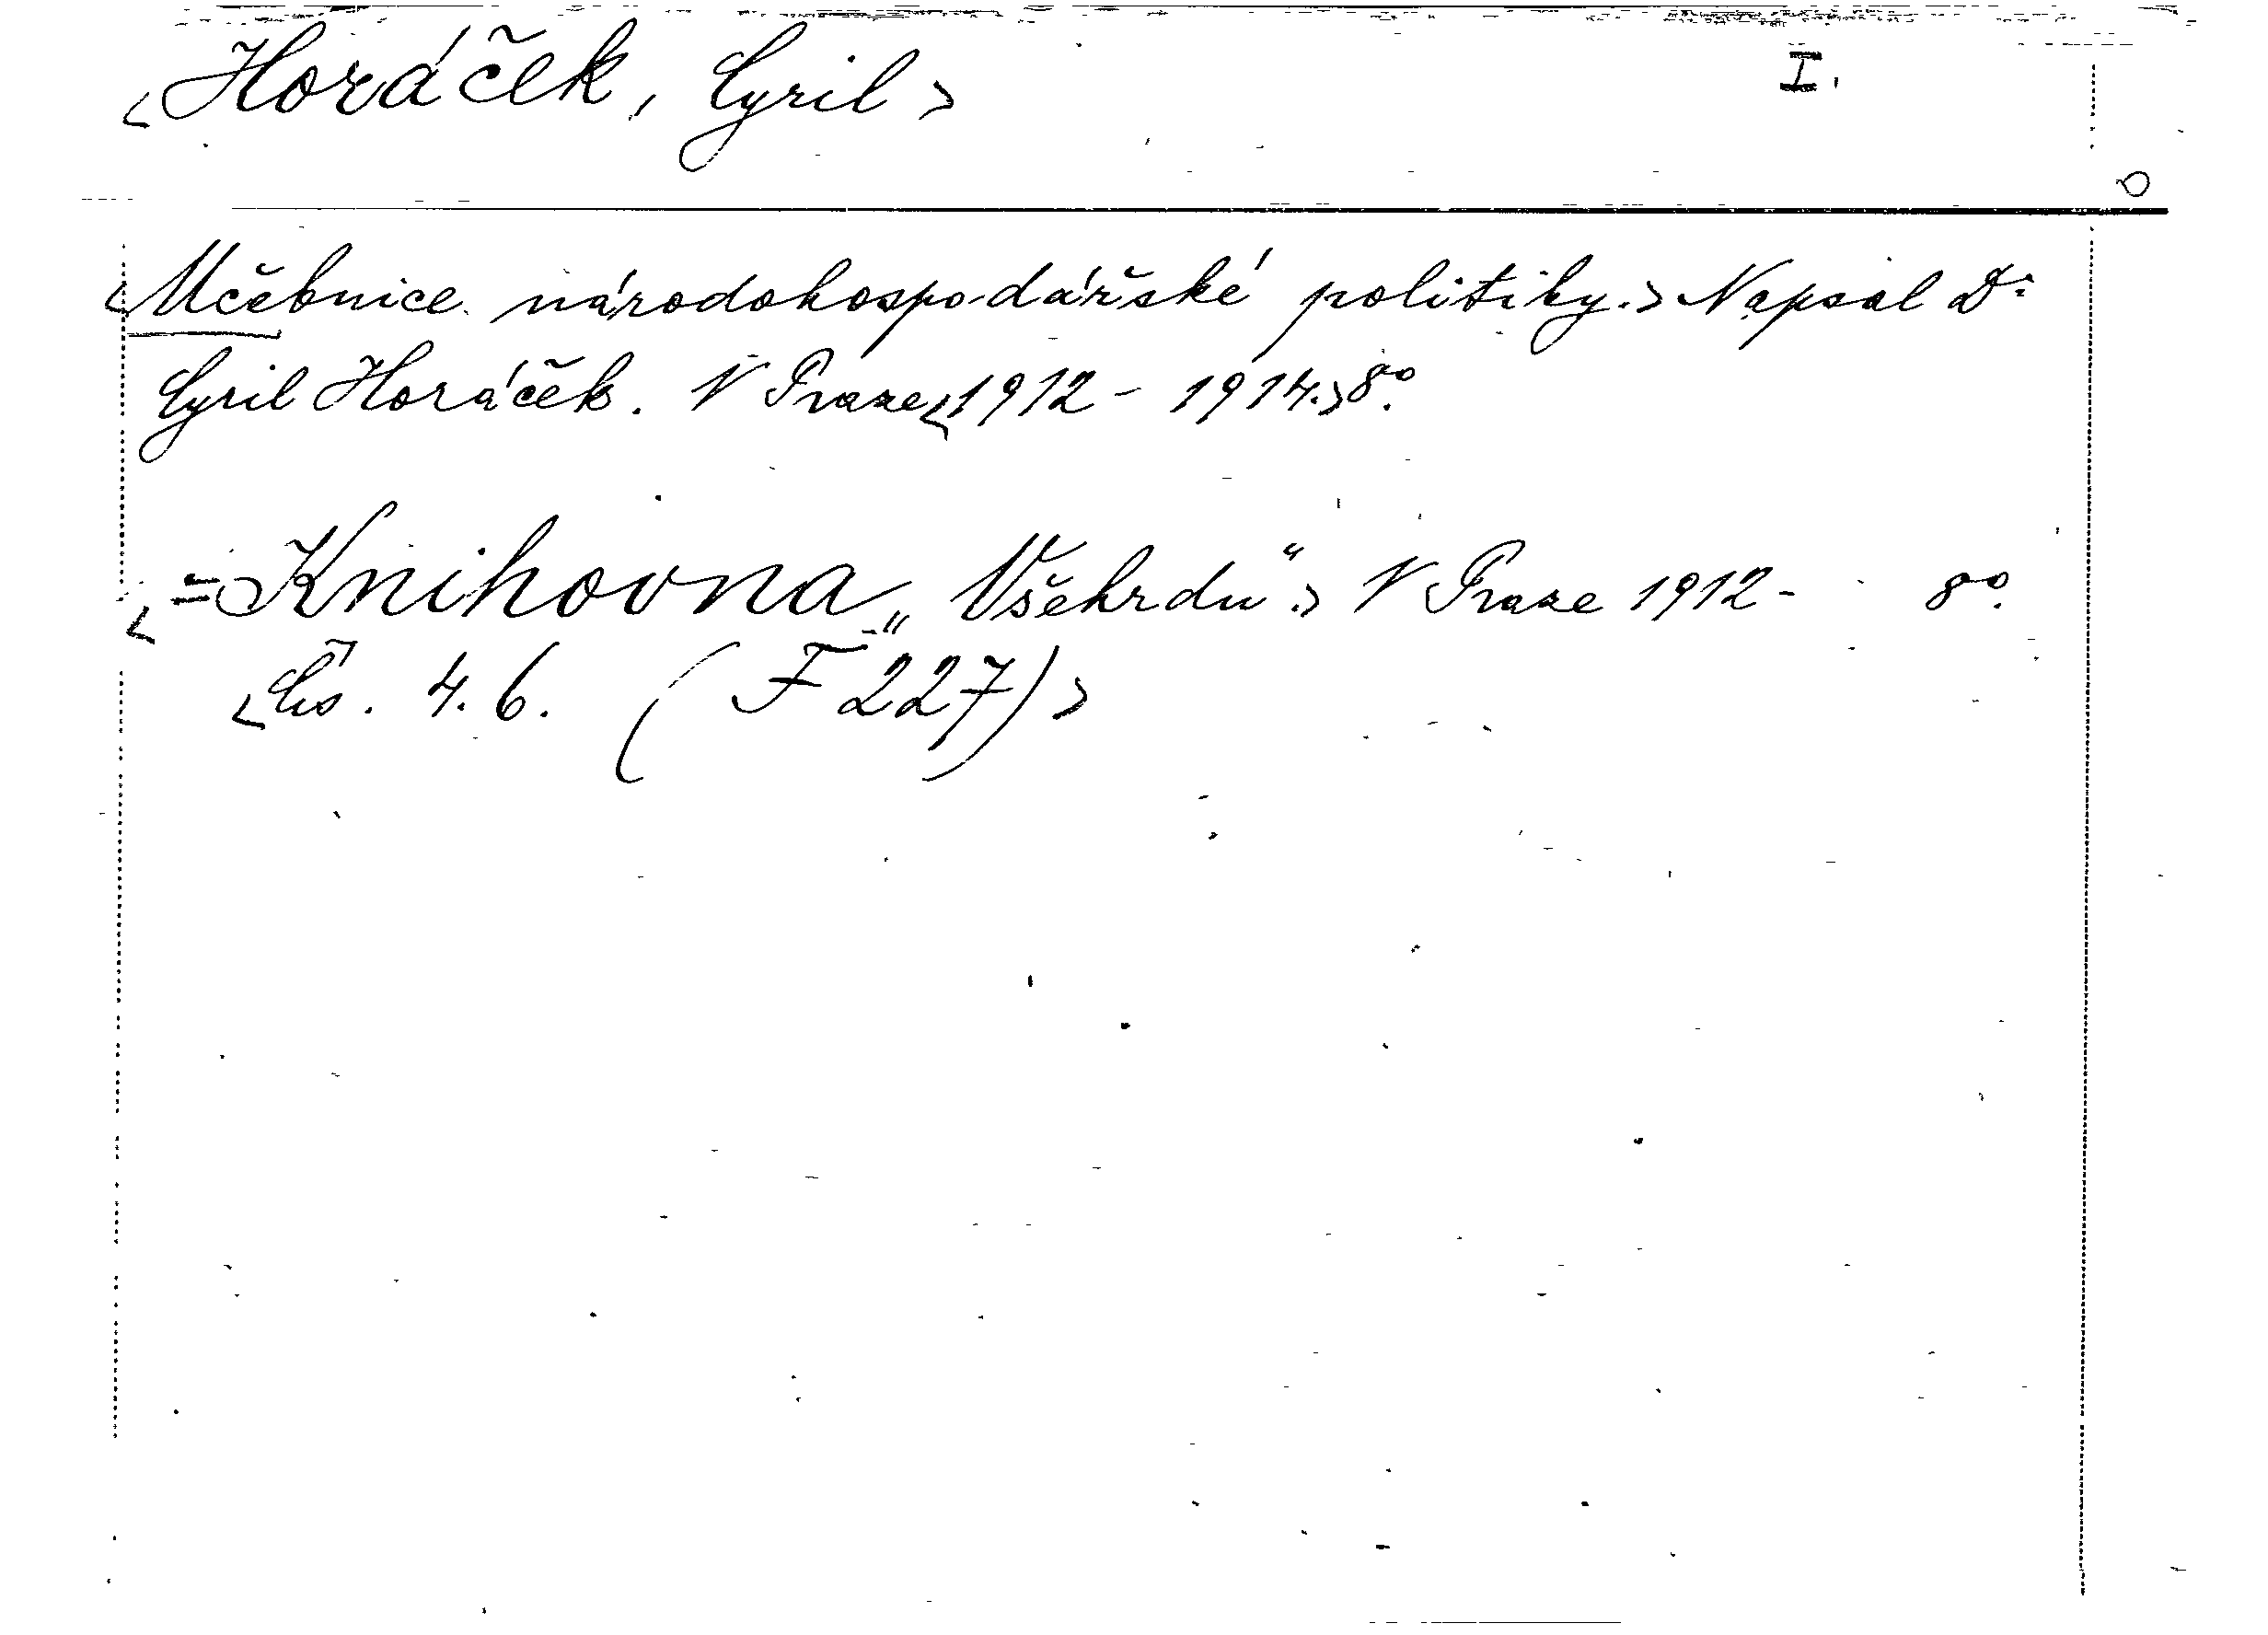 <Horáček, Cyril> I.
<Učebnice národohospodářské politiky.> Napsal Dr
Cyril Horáček. V Praze <1912 - 1914.> 8°.
<= Knihovna „Všehrdu“.> V Praze 1912 - 8°.
<Čís. 4. 6. (F 227)>